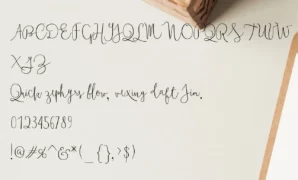 ABCDEFGHIJKLMNOPQRSTUVW
XYZ
Quick zephyrs blow, vexing daft Jim.
0123456789
!@#%^&*(_{},>$)